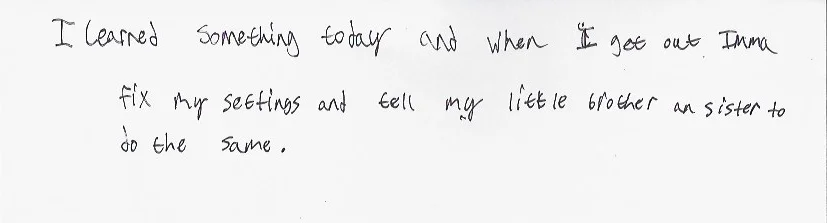 I learned something today and when I get out Imma
fix my settings and tell my little brother an sister to
do the same.